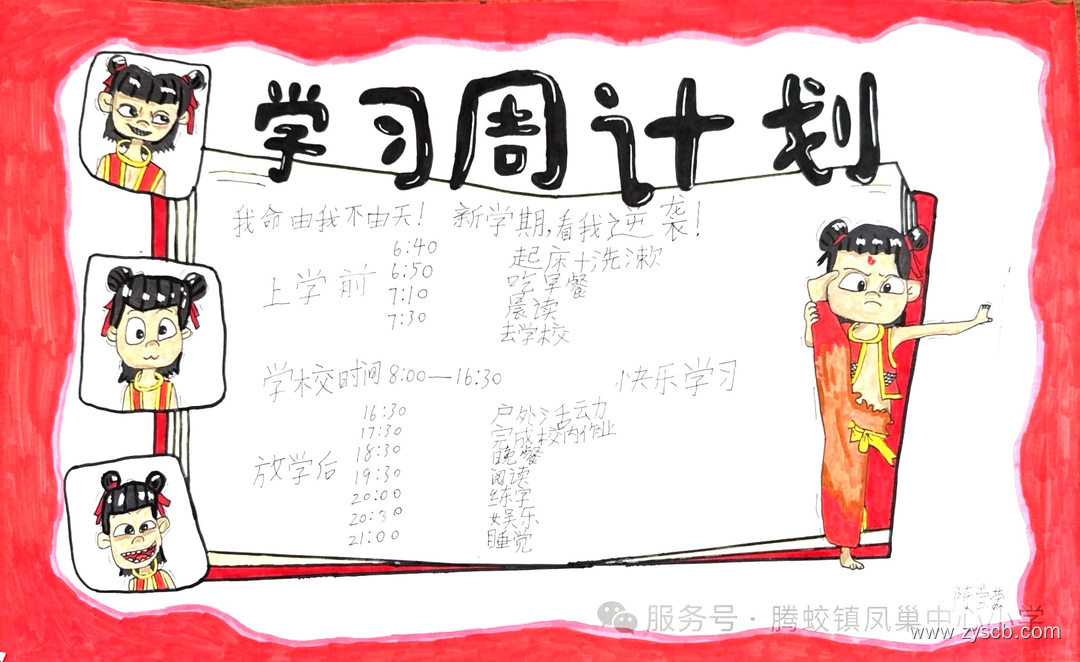 学习周计划
我命由我不由天! 新学期,看我之逆袭!
上学前
6:40 起床+洗漱
6:50 吃早餐
7:10 晨读
7:30 去学校
学校时间 8:00—16:30 快乐学习
放学后
16:30 户外活动
17:30 完成校内作业
18:30 晚餐
19:30 阅读
20:00 练字
20:30 娱乐
21:00 睡觉
服务号·腾蛟镇凤巢中心小学
www.zyscb.com